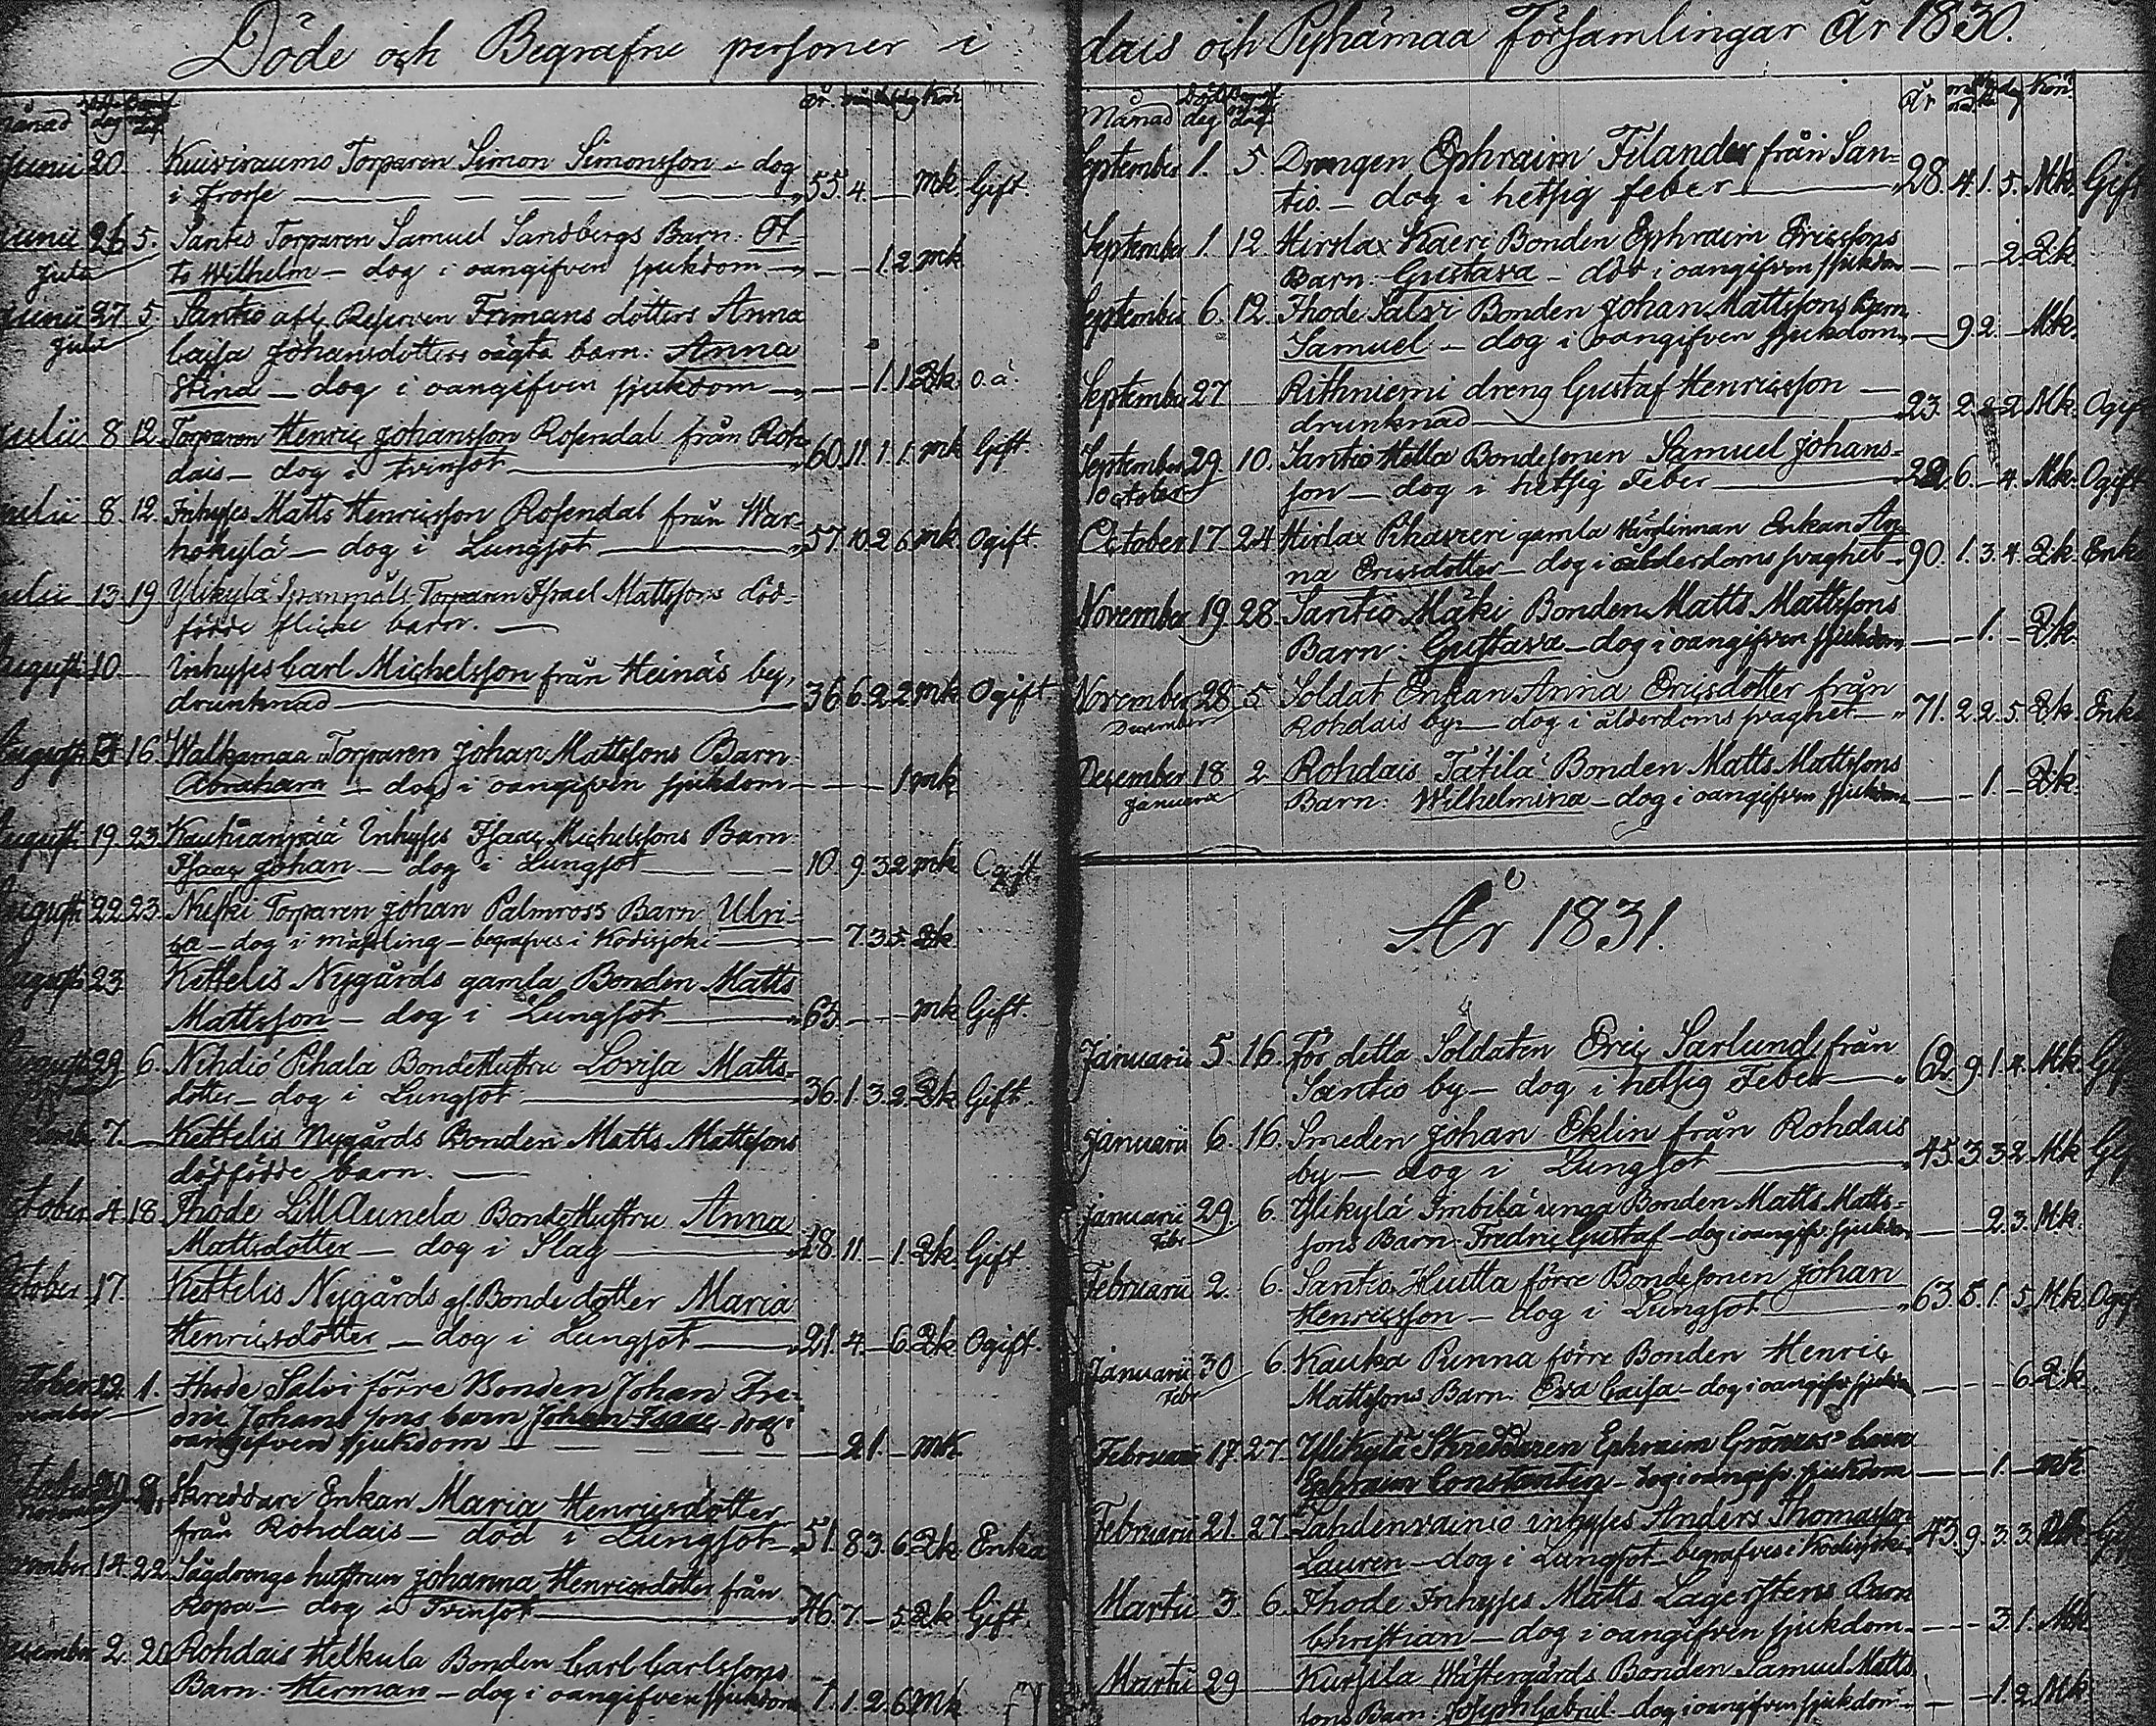 Döde och Begrafne personer i
Månad
År
Junii 20. Kuiviraums Torparen Simon Simonsson - dog
i Frosse 55. 4. mk. Gift.
Junii 26 5. Santio Torparen Samuel Sandbergs Barn: Ot-
Julii to Wilhelm - dog i oangifven sjukdom 1. 2. mk
Junii 27 5. Santio Reserven Frimans dotters Anna
Julii Cajsa Johansdotters oägta barn: Anna
Stina - dog i oangifven sjukdom 1. 1. Qk. o.ä.
Julii 8 12. Torparen Henric Johansson Rosendal från Roh-
dais - dog i tvinsot 60. 11. 1. 1. mk Gift.
Julii 8. 12. Inhyses Matts Henricsson Rosendal från War-
hokylä - dog i Lungsot 57. 10. 2. 6. mk. Ogift.
Julii 13 19 Ylikylä Torparen Israel Mattssons död-
födde flicke barn.
Augusti 10 Inhyses Carl Michelsson från Heinäs by,
drunknad 36. 6. 2. 2. mk Ogift
Augusti 16. Walkamaa Torparen Johan Mattssons Barn
Abraham - dog i oangifven sjukdom 1. mk
Augusti 19. 23. Kauhianpää Inhyses Isaac Michelssons Barn:
Isaac Johan - dog i Lungsot 10. 9. 3 2. mk Ogift
Augusti 22 23. Torparen Johan Palmross Barn: Ulri-
ca - dog i mässling - begrafves i Kodisjoki 7. 3. 5. Qk
Augusti 23 Kettelis Nygårds gamla Bonden Matts
Mattsson - dog i Lungsot 63. mk Gift.
Augusti 29 6. Nihdiö Pihala BondeHustru Lovisa Matts-
dotter - dog i Lungsot 36. 1. 3. 2. Qk Gift.
7. Kettelis Nygårds Bonden Matts Mattssons
dödfödde barn.
October 4. 18. Ihode LillAunela BondeHustru Anna
Mattsdotter - dog i Slag 28. 11. - 1. Qk. Gift.
October 17. Kettelis Nygårds Bondedotter Maria
Henricsdotter - dog i Lungsot 21. 4. - 6. Qk Ogift.
October 1. Ihode Salvi förre Bonden Johan Fre-
dric Johans sons barn Johan Isaac dog i
oangifven sjukdom 2 1. - mk.
Skreddare Enkan Maria Henricsdotter
från Rohdais - död i Lungsot 51. 8. 3. 6. Qk Enka
November 14. 22. Sågdrengs hustrun Johanna Henricsdotter från
Ropa - dog i Tvinsot 46. 7. - 5. Qk Gift.
December 2. 26 Rohdais Helkula Bonden Carl Carlssons
Barn: Herman - dog i oangifven sjukdom 1. 1. 2. 6. Mk
dais och Pyhämaa Församlingar År 1830.
Månad
År
September 1. 5. Drengen Ephraim Filander från San-
tio. - dog i hetsig feber 28. 4. 1. 5. Mk. Gift
September 1. 12. Hirslax Kaeri Bonden Ephraim Ericssons
Barn: Gustava - död i oangifven sjukdom 2. Qk
September 6. 12. Ihode Salvi Bonden Johan Mattssons Barn
Samuel - dog i oangifven sjukdom 9 2. - Mk.
September 27 Rithniemi dreng Gustaf Henricsson
drunknad 23. 2. 2. 2. Mk. Ogift
September 29. 10. Santio Hella Bondesonen Samuel Johans-
October son - dog i hetsig Feber 22. 6. - 4. Mk. Ogift
October 17 24 Hirslax Pihaveri gamla Värdinnan Enkan An-
na Ericsdotter - dog i ålderdoms svaghet 90. 1. 3. 4. Qk. Enk
November 19 28. Santio Mäki Bonden Matts Mattssons
Barn: Gustava - dog i oangifven sjukdom 1. - Qk
November 28 5 Soldat Enkan Anna Ericsdotter från
December Rohdais by - dog i ålderdoms svaghet 71. 2. 2. 5. Qk. Enk
December 18 2 Rohdais Tätilä Bonden Matts Mattssons
Januarii Barn: Wilhelmina - dog i oangifven sjukdom 1. - Qk.
År 1831.
Januarii 5. 16. För detta Soldaten Eric Sarlund från
Santio by - dog i hetsig Feber 62. 9. 1. 4. Mk. Gif
Januarii 6. 16. Smeden Johan Eklin från Rohdais
by - dog i Lungsot 45. 3. 3 2. Mk Gif
Januarii 29. 6. Ylikylä Imbilä unga Bonden Matts Matts-
Febr sons Barn Fredric Gustaf - dog i oangifv. sjukdom 2. 3. Mk.
Februarii 2. 6. Santio Hutta förre Bondesonen Johan
Henricsson - dog i Lungsot 63. 8. 1. 5. Mk. Ogif
Januarii 30 6. Kauka Punna förre Bonden Henric
Febr Mattssons Barn: Eva Caisa - dog i oangifv. sjukdom 6. Qk
Februarii 17 27. Ylikylä Skreddaren Ephraim Grönroos' barn
Ephraim Constantin - dog i oangifv. sjukdom 1. - mk
Februarii 21. 27. Lahdenvainio inhyses Anders Thomasson
Lauren - dog i Lungsot - begrafves i Kodisjoki 43. 9. 3. 3. Mk Gif
Martii 3. 6. Ihode Inhyses Matts Lagerstens Barn
Christian - dog i oangifven sjukdom 3. 1. Mk
Martii 29 Kursila Wästergårds Bonden Samuel Matts
sons Barn: Joseph Gabriel - dog i oangifven sjukdom 1. 2. Mk